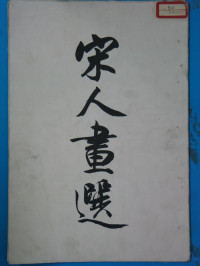 宋人畫選